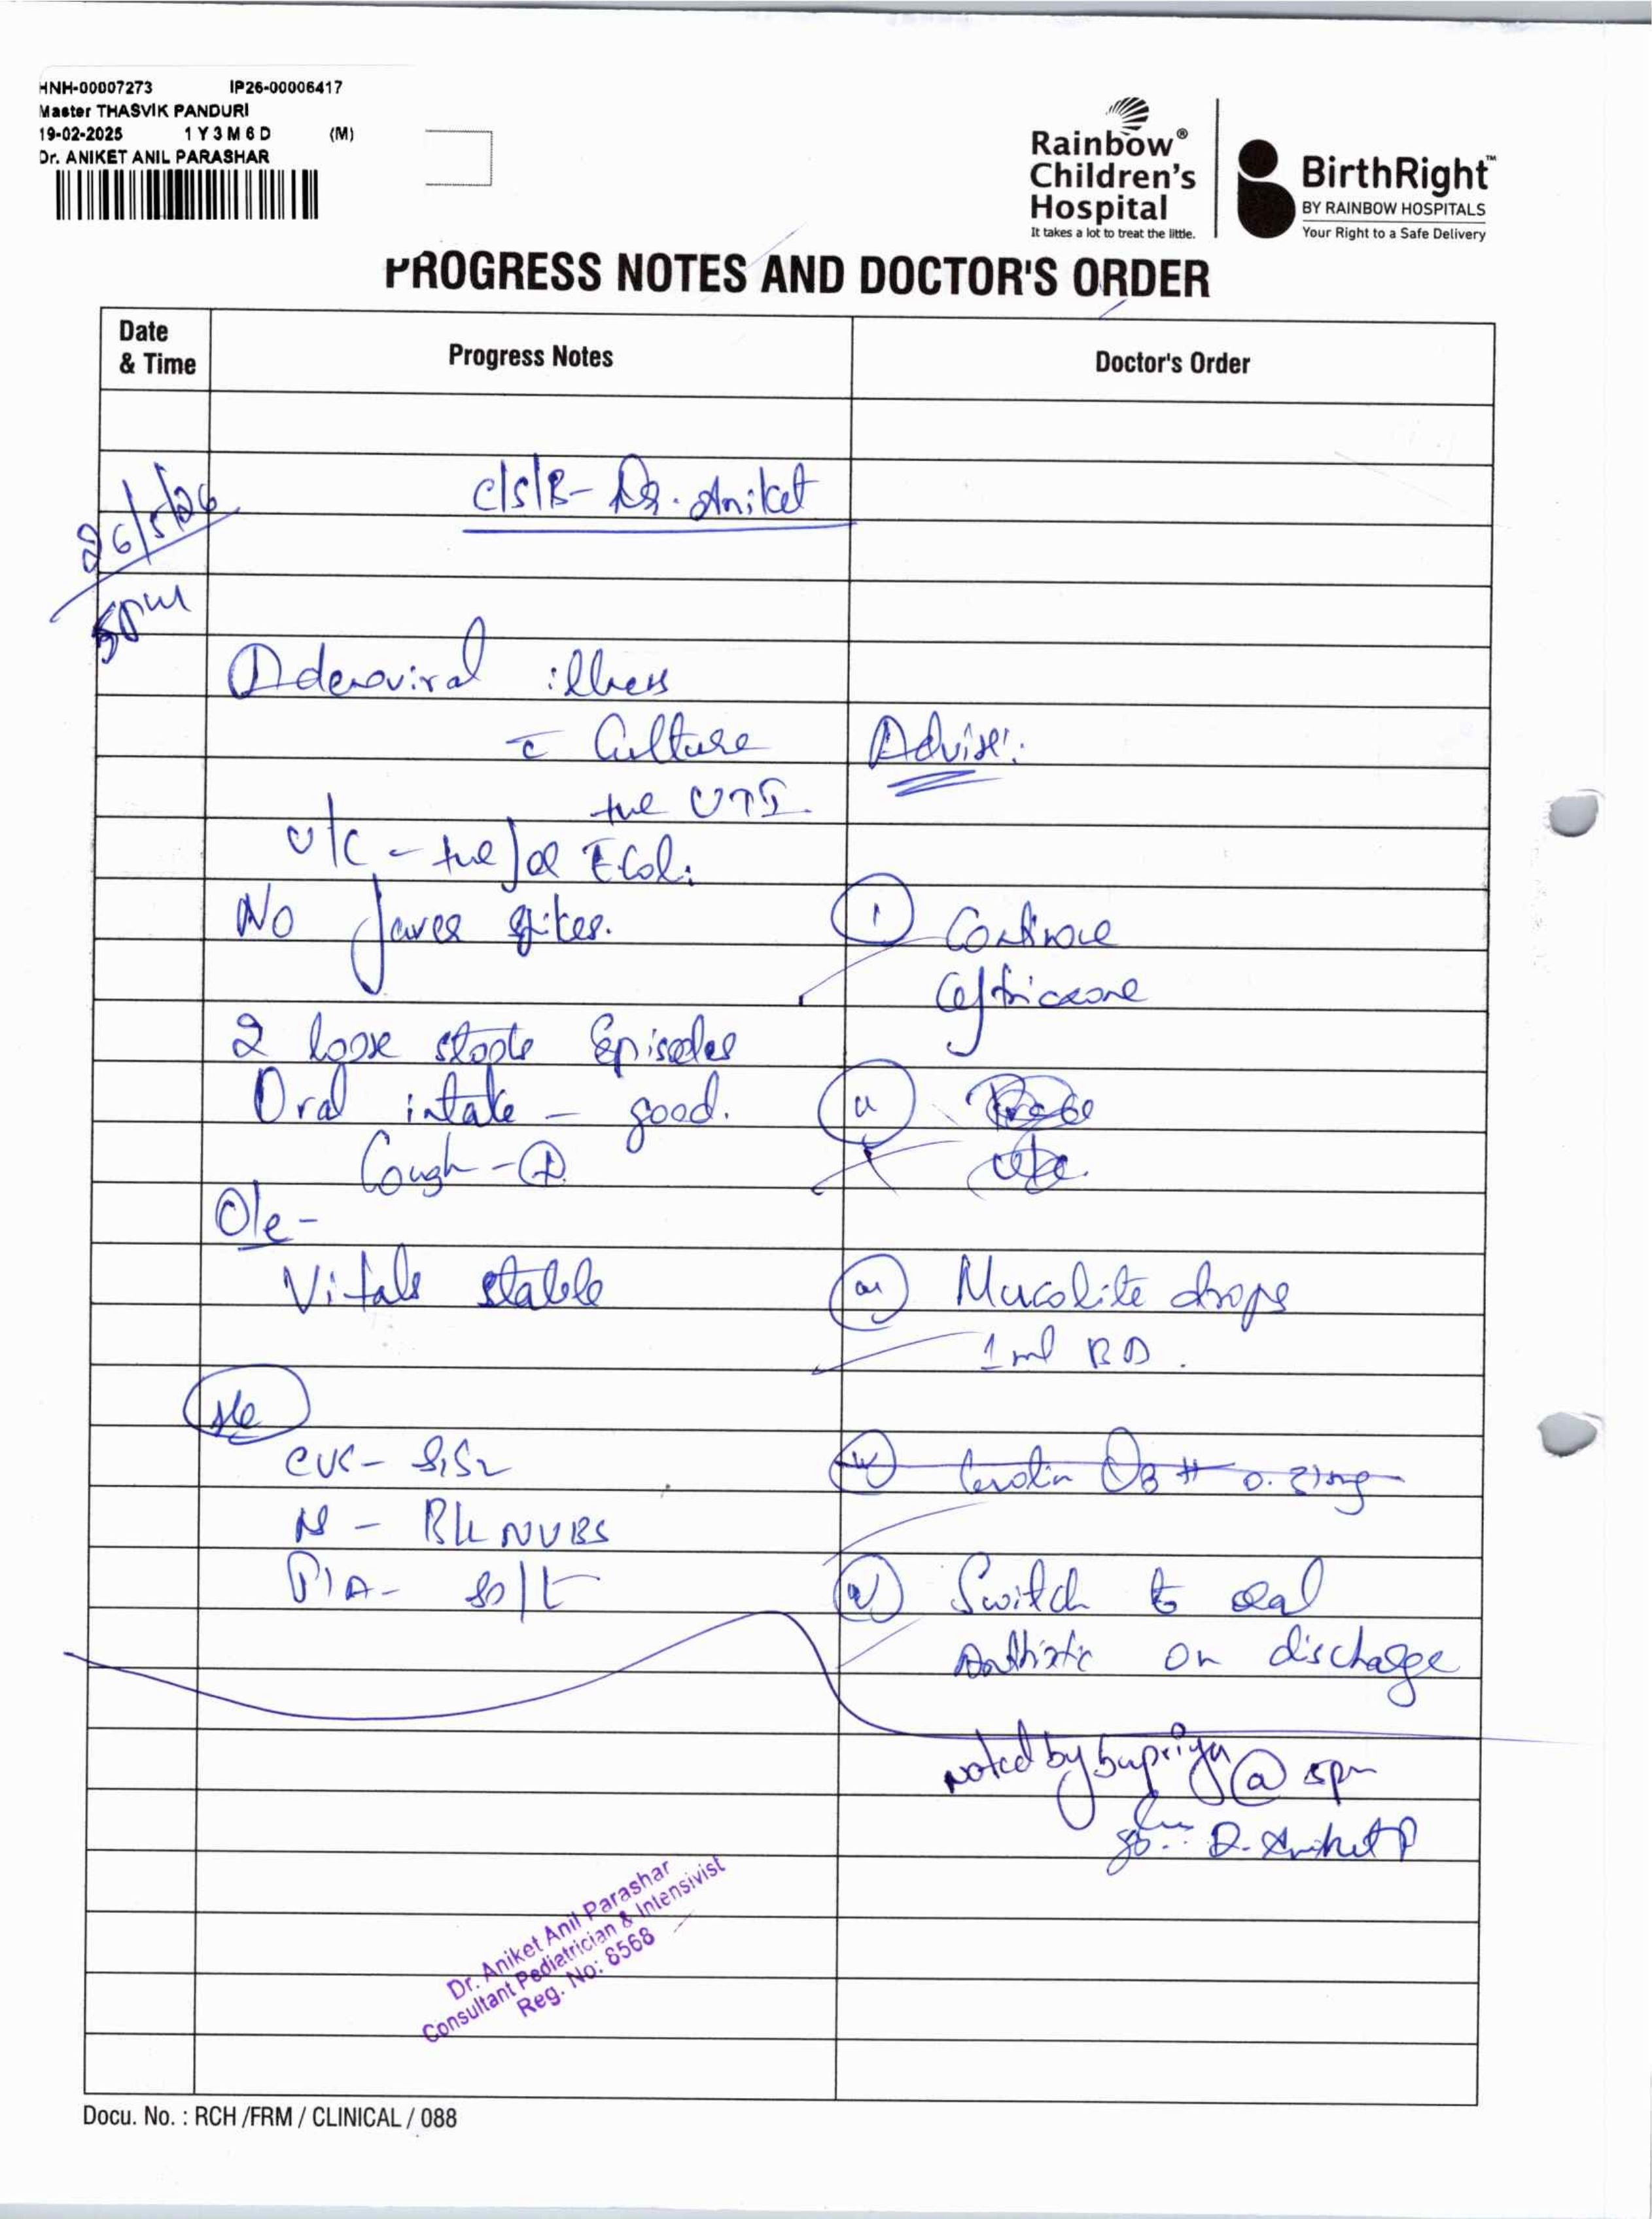 HNH-00007273 IP26-00006417
Master THASVIK PANDURI
19-02-2025 1 Y 3 M 6 D (M)
Dr. ANIKET ANIL PARASHAR
Rainbow®
Children's
Hospital
It takes a lot to treat the little.
BirthRight™
BY RAINBOW HOSPITALS
Your Right to a Safe Delivery
PROGRESS NOTES AND DOCTOR'S ORDER
Date
& Time
Progress Notes
Doctor's Order
26/5/26
5pm
c/s/B- Dr. Aniket
Adenoviral illness
c̄ Culture
+ve UTI.
U/C - +ve for E.Coli
No fever spikes.
2 loose stools Episodes
Oral intake - good.
Cough - ⊕
O/e -
Vitals stable
S/e
CVS - S1S2
RS - B/L NVBS
P/A - soft
Advise:
(i) Continue
Ceftriaxone
(ii)
(iii) Mucolite drops
1 ml BD.
(iv)
(v) Switch to oral
Antibiotic on discharge
noted by Supriya @ 5pm
Dr. Aniket P
Dr. Aniket Anil Parashar
Consultant Pediatrician & Intensivist
Reg. No: 8568
Docu. No. : RCH /FRM / CLINICAL / 088